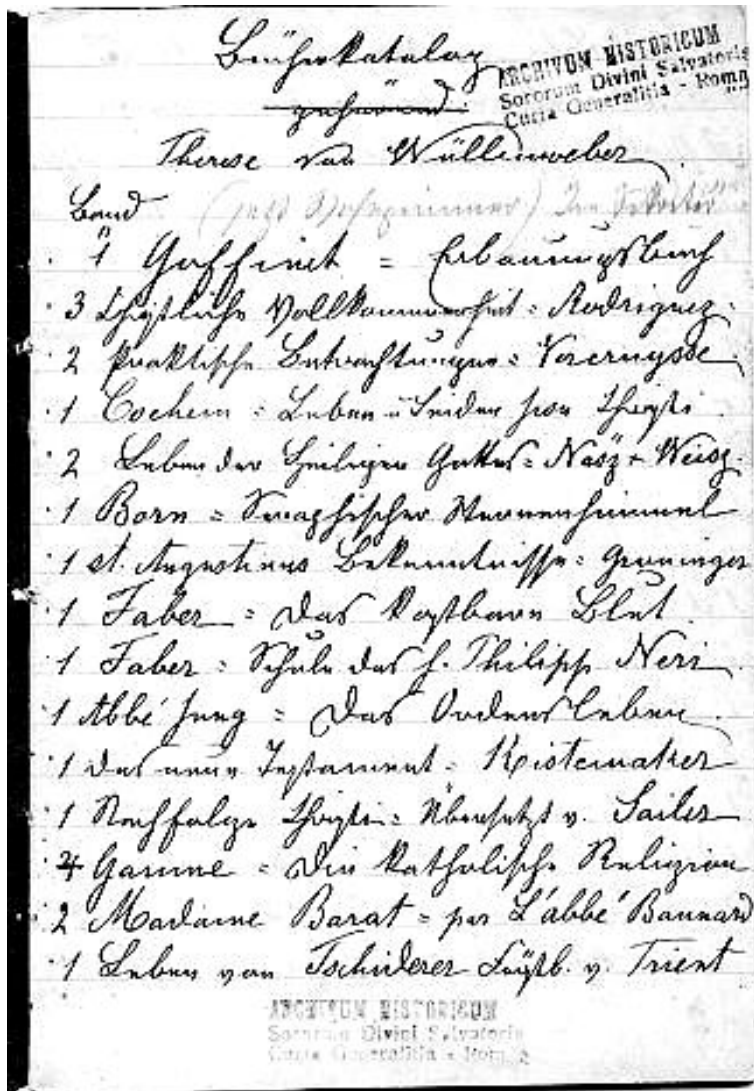 Bücherkatalog
ARCHIVUM HISTORICUM
Sororum Divini Salvatoris
Curia Generalitia - Roma
gehörend:
Therese von Wüllenweber
Band
1 Goffinet = Erbauungsbuch
3 Christliche Vollkommenheit = Rodriguez
2 Praktische Betrachtungen = Vercruysse
1 Cochem = Leben u Leiden Christi
2 Leben der Heiligen Gottes = Näsz + Weisz
1 Born = Seraphischer Sternenhimmel
1 St. Augustinus Bekenntnisse = Gröninger
1 Faber = Das kostbare Blut
1 Faber = Schule des h. Philipp Neri
1 Abbé Jung = Das Ordensleben
1 Das neue Testament = Kistemaker
1 Nachfolge Christi = Übersetzt v. Sailer
4 Gaume = Die katholische Religion
2 Madame Barat = par L'abbé Baunard
1 Leben von Tschiderer Fürstb. v. Trient
ARCHIVUM HISTORICUM
Sororum Divini Salvatoris
Curia Generalitia - Roma